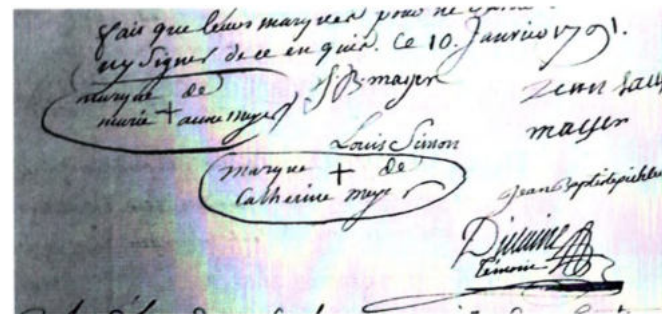 fait que leurs marques pour ne
ny signer de ce enquis. Ce 10. Janvier 1791.
marque de
marie + anne meyer
J. B. mayer
Jean
mayer
Louis Simon
marque + de
Catherine meye
Jean Baptiste
témoin